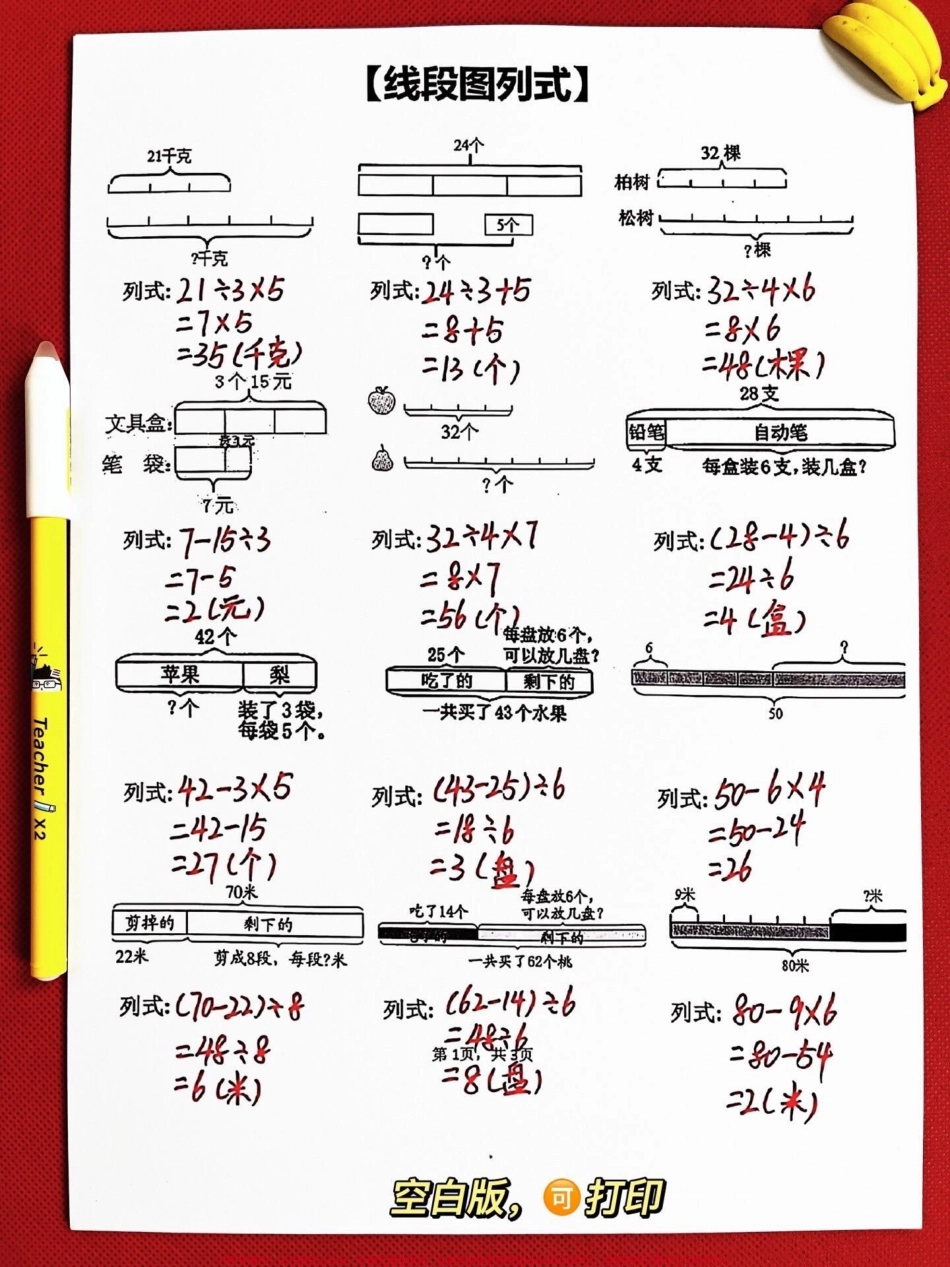 【线段图列式】
21千克
?千克
列式:21÷3×5
=7×5
=35(千克)
24个
5个
?个
列式:24÷3+5
=8+5
=13(个)
32棵
柏树
松树
?棵
列式:32÷4×6
=8×6
=48(棵)
3个15元
文具盒:
贵3元
笔 袋:
7元
列式:7-15÷3
=7-5
=2(元)
32个
?个
列式:32÷4×7
=8×7
=56(个)
28支
铅笔 自动笔
4支 每盒装6支,装几盒?
列式:(28-4)÷6
=24÷6
=4(盒)
42个
苹果 梨
?个 装了3袋,
每袋5个。
列式:42-3×5
=42-15
=27(个)
每盘放6个,
25个 可以放几盘?
吃了的 剩下的
一共买了43个水果
列式:(43-25)÷6
=18÷6
=3(盘)
6 ?
50
列式:50-6×4
=50-24
=26
70米
剪掉的 剩下的
22米 剪成8段,每段?米
列式:(70-22)÷8
=48÷8
=6(米)
每盘放6个,
吃了14个 可以放几盘?
吃了的 剩下的
一共买了62个桃
列式:(62-14)÷6
=48÷6
第1页,共3页
=8(盘)
9米 ?米
80米
列式:80-9×6
=80-54
=2(米)
空白版,可打印
Teacher X2